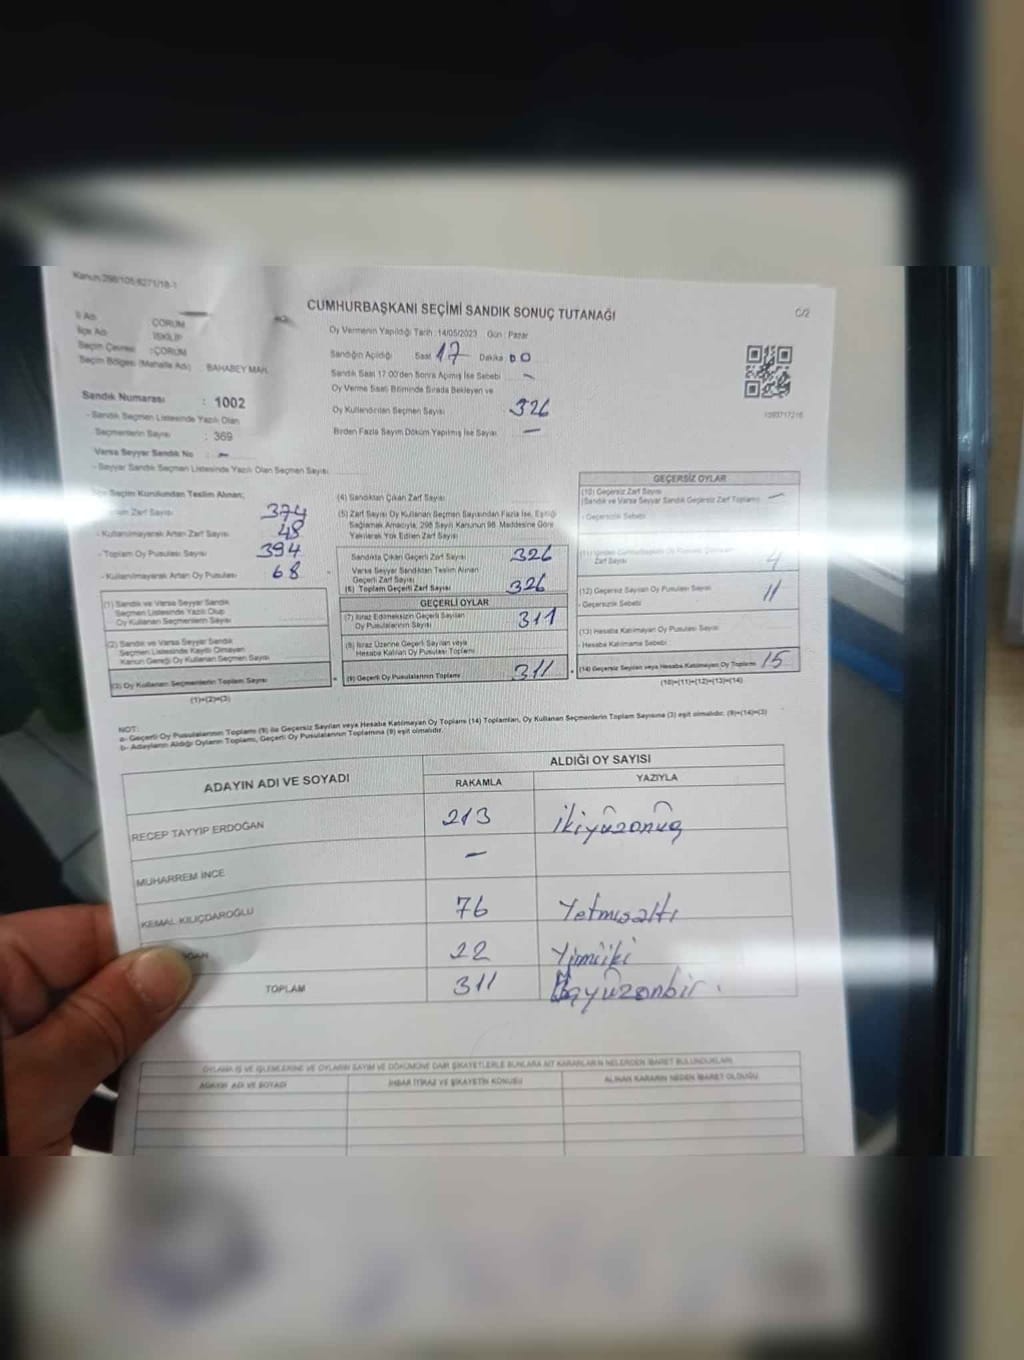 Kanun:298/105-6271/18-1
CUMHURBAŞKANI SEÇİMİ SANDIK SONUÇ TUTANAĞI
C/2
İl Adı : ÇORUM
İlçe Adı : İSKİLİP
Seçim Çevresi : ÇORUM
Seçim Bölgesi (Mahalle Adı) : BAHABEY MAH.
Sandık Numarası : 1002
- Sandık Seçmen Listesinde Yazılı Olan
Seçmenlerin Sayısı : 369
Varsa Seyyar Sandık No -
- Seyyar Sandık Seçmen Listesinde Yazılı Olan Seçmen Sayısı
Oy Vermenin Yapıldığı Tarih : 14/05/2023 Gün : Pazar
Sandığın Açıldığı Saat 17 Dakika 00
Sandık Saat 17.00'den Sonra Açılmış İse Sebebi -
Oy Verme Saati Bitiminde Sırada Bekleyen ve
Oy Kullandırılan Seçmen Sayısı 326
Birden Fazla Sayım Döküm Yapılmış İse Sayısı -
Seçim Kurulundan Teslim Alınan;
Zarf Sayısı 374
- Kullanılmayarak Artan Zarf Sayısı 48
- Toplam Oy Pusulası Sayısı 394
- Kullanılmayarak Artan Oy Pusulası 68
(1) Sandık ve Varsa Seyyar Sandık
Seçmen Listesinde Yazılı Olup
Oy Kullanan Seçmenlerin Sayısı
(2) Sandık ve Varsa Seyyar Sandık
Seçmen Listesinde Kayıtlı Olmayan
Kanun Gereği Oy Kullanan Seçmen Sayısı
(3) Oy Kullanan Seçmenlerin Toplam Sayısı
(1)+(2)=(3)
(4) Sandıktan Çıkan Zarf Sayısı
(5) Zarf Sayısı Oy Kullanan Seçmen Sayısından Fazla İse, Eşitliği
Sağlamak Amacıyla, 298 Sayılı Kanunun 98. Maddesine Göre
Yakılarak Yok Edilen Zarf Sayısı
Sandıkta Çıkan Geçerli Zarf Sayısı 326
Varsa Seyyar Sandıktan Teslim Alınan
Geçerli Zarf Sayısı
(6) Toplam Geçerli Zarf Sayısı 326
GEÇERLİ OYLAR
(7) İtiraz Edilmeksizin Geçerli Sayılan
Oy Pusulalarının Sayısı 311
(8) İtiraz Üzerine Geçerli Sayılan veya
Hesaba Katılan Oy Pusulası Toplamı
(9) Geçerli Oy Pusulalarının Toplamı 311
1093717216
GEÇERSİZ OYLAR
(10) Geçersiz Zarf Sayısı
(Sandık ve Varsa Seyyar Sandık Geçersiz Zarf Toplamı) -
- Geçersizlik Sebebi
Zarf Sayısı 4
(12) Geçersiz Sayılan Oy Pusulası Sayısı 11
- Geçersizlik Sebebi
(13) Hesaba Katılmayan Oy Pusulası Sayısı
- Hesaba Katılmama Sebebi
(14) Geçersiz Sayılan veya Hesaba Katılmayan Oy Toplamı 15
(10)+(11)+(12)+(13)=(14)
NOT:
a- Geçerli Oy Pusulalarının Toplamı (9) ile Geçersiz Sayılan veya Hesaba Katılmayan Oy Toplamı (14) Toplamları, Oy Kullanan Seçmenlerin Toplam Sayısına (3) eşit olmalıdır. (9)+(14)=(3)
b- Adayların Aldığı Oyların Toplamı, Geçerli Oy Pusulalarının Toplamına (9) eşit olmalıdır.
ADAYIN ADI VE SOYADI
ALDIĞI OY SAYISI
RAKAMLA YAZIYLA
RECEP TAYYİP ERDOĞAN 213 ikiyüzonüç
MUHARREM İNCE -
KEMAL KILIÇDAROĞLU 76 Yetmişaltı
22 Yirmiiki
TOPLAM 311 Üçyüzonbir.
OYLAMA İŞ VE İŞLEMLERİNE VE OYLARIN SAYIM VE DÖKÜMÜNE DAİR ŞİKAYETLERLE BUNLARA AİT KARARLARIN NELERDEN İBARET BULUNDUKLARI
ADAYIN ADI VE SOYADI İHBAR İTİRAZ VE ŞİKAYETİN KONUSU ALINAN KARARIN NEDEN İBARET OLDUĞU